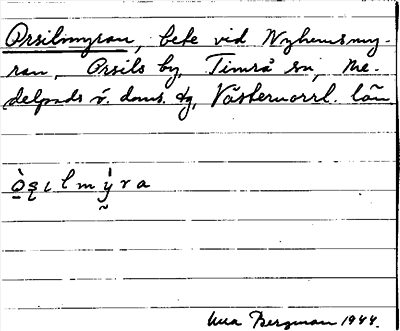 Orsilmyran, bete vid Nyhemsmy-
ran, Orsils by, Timrå sn, Me-
delpads v. doms. dg, Västernorrl. län
ò̱ʂɩlmỳ̰ra
Bergman 1944.